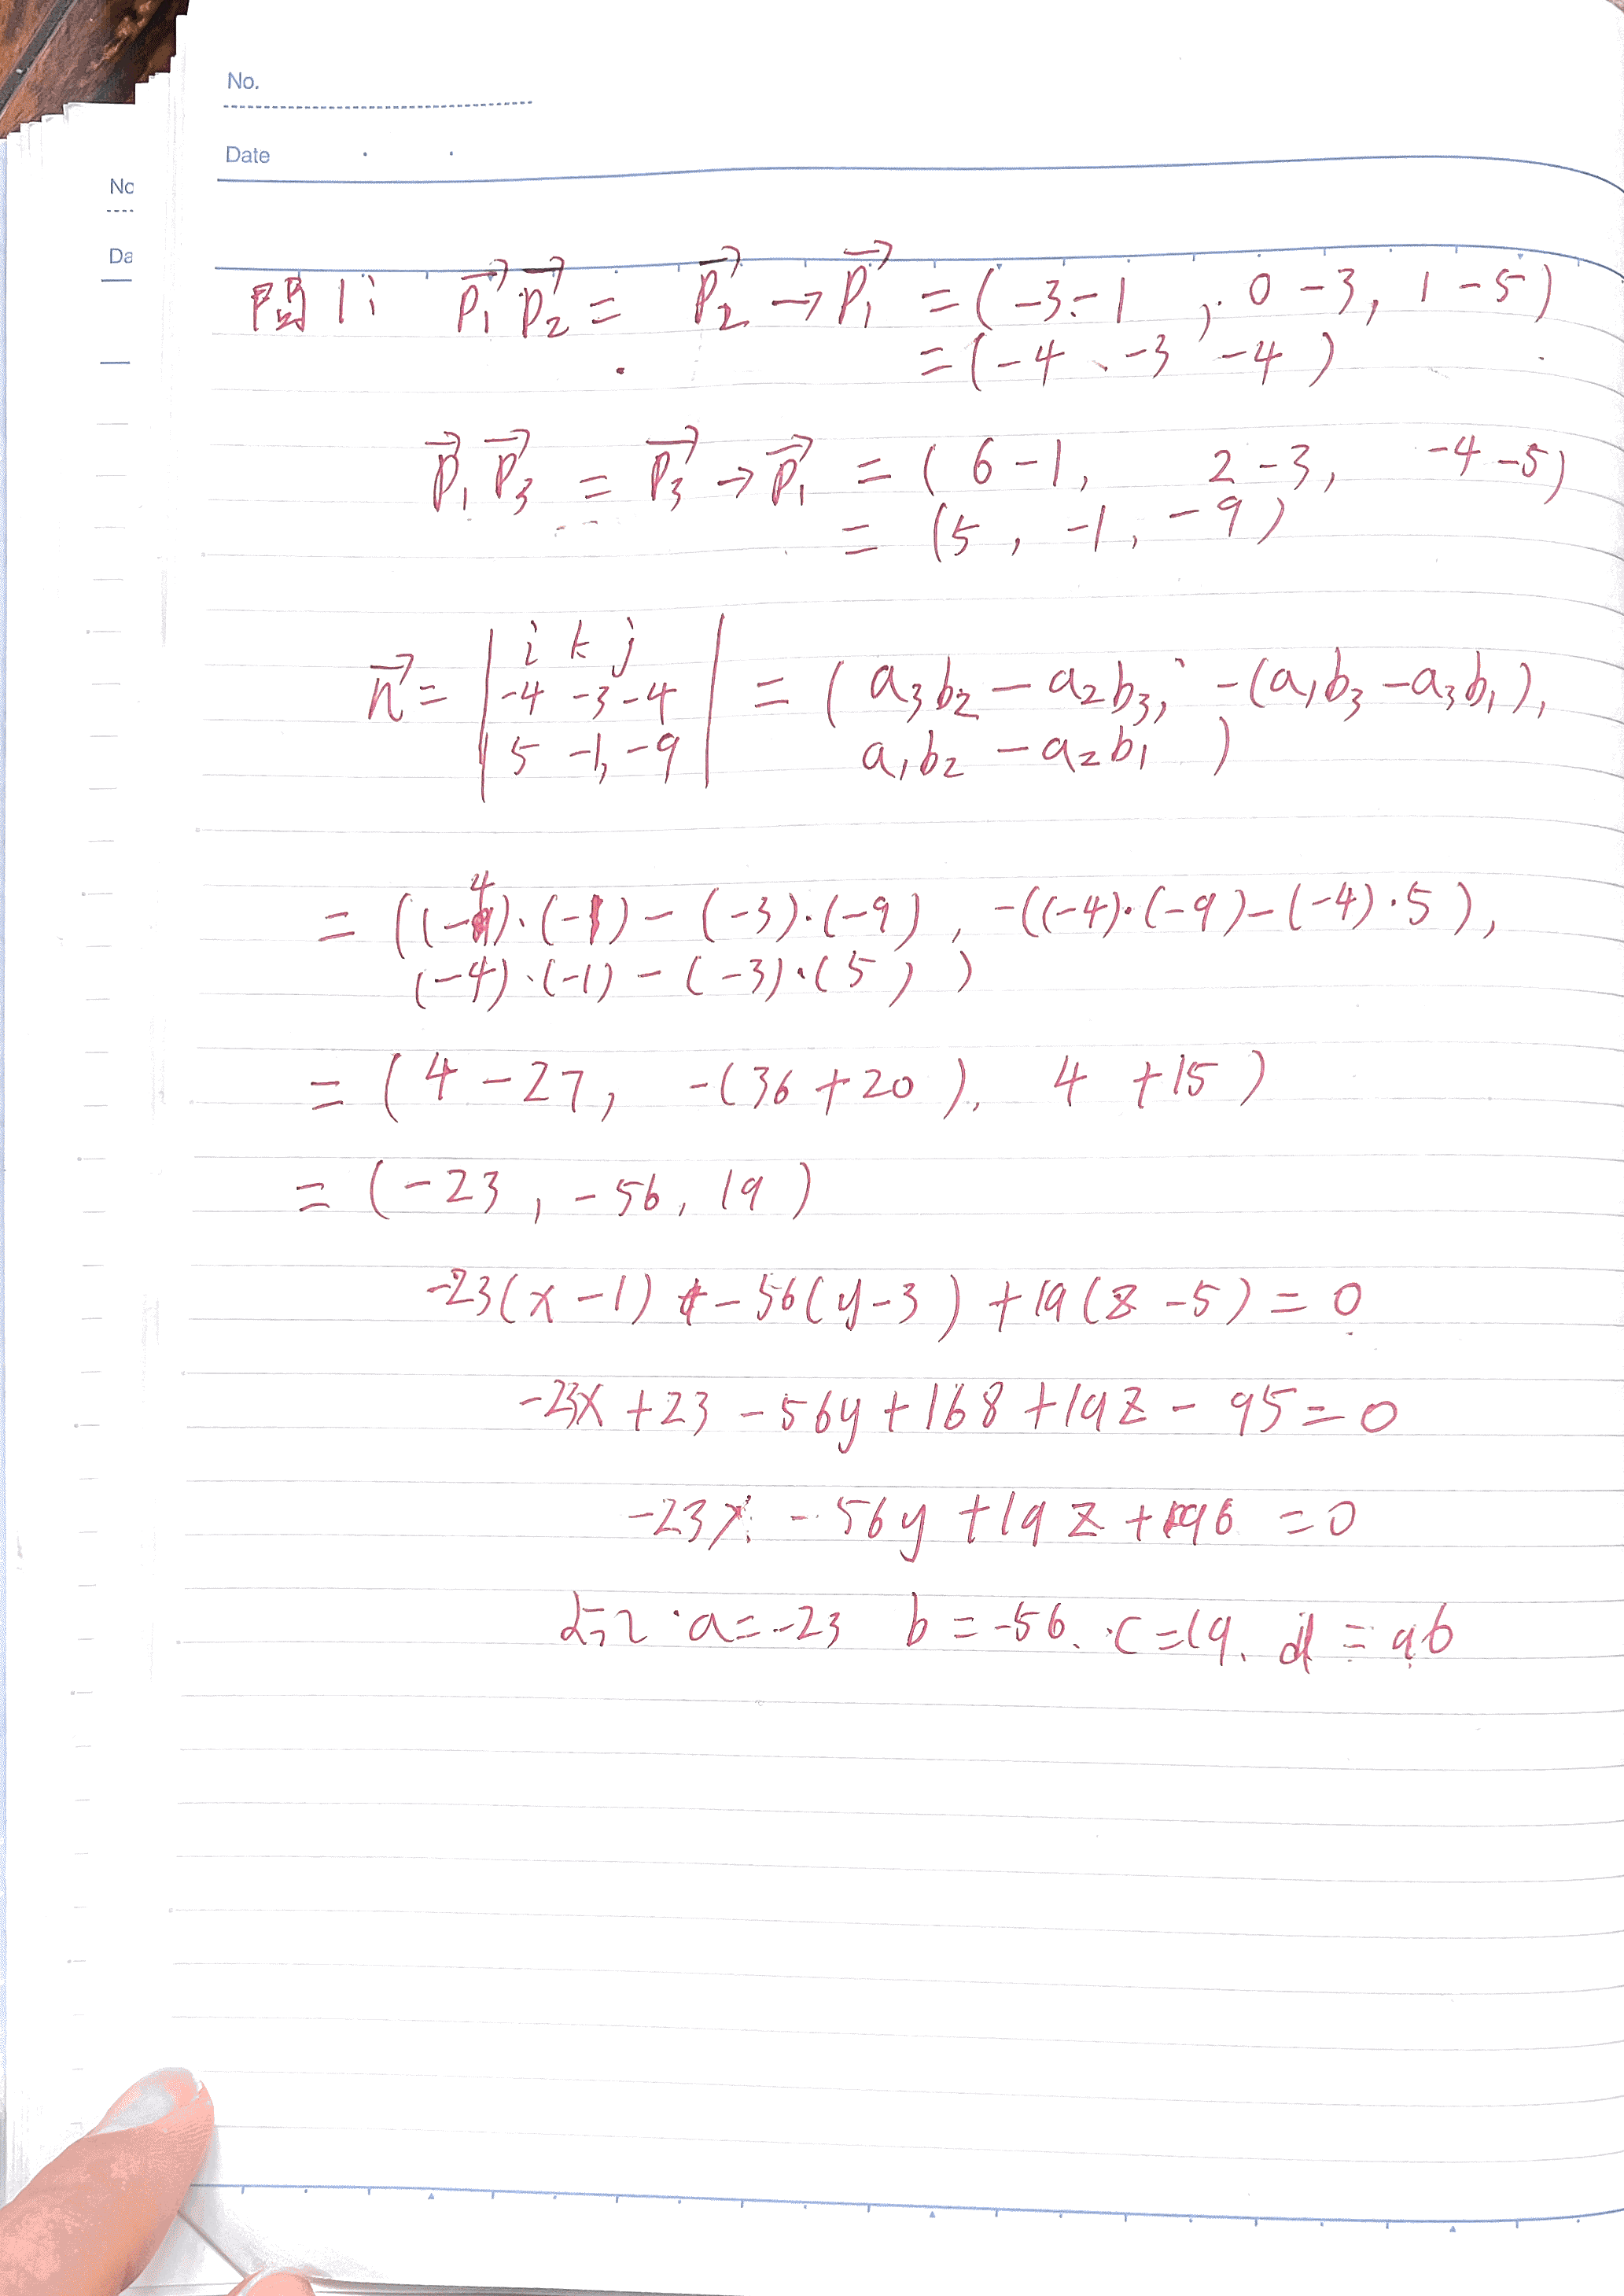 No.
Date
No
Da
問1: P₁⃗P₂⃗ = P₂⃗ → P₁⃗ = (-3-1, 0-3, 1-5)
= (-4、-3, -4)
P₁⃗P₃⃗ = P₃⃗ → P₁⃗ = (6-1, 2-3, -4-5)
= (5, -1, -9)
n⃗ = | i k j | = (a₃b₂ - a₂b₃, -(a₁b₃ - a₃b₁),
| -4 -3 -4 | a₁b₂ - a₂b₁)
| 5 -1, -9 |
= ((-4)·(-1) - (-3)·(-9), -((-4)·(-9)-(-4)·5),
(-4)·(-1) - (-3)·(5))
= (4-27, -(36+20), 4+15)
= (-23, -56, 19)
-23(x-1) - 56(y-3) + 19(z-5) = 0
-23x + 23 - 56y + 168 + 19z - 95 = 0
-23x - 56y + 19z + 96 = 0
よって a=-23 b=-56. c=19. d=96